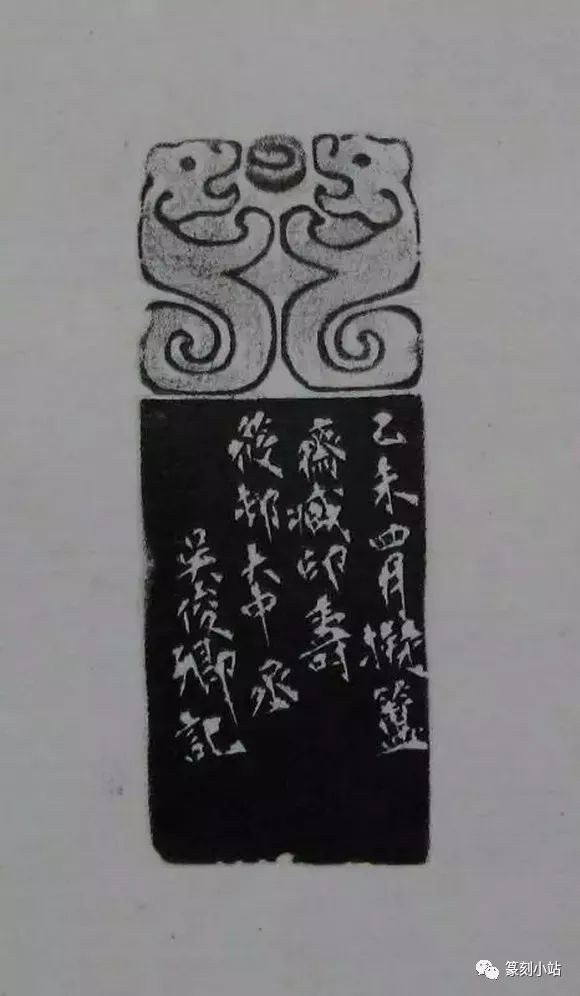 乙未四月擬簠
齋藏印壽
筱邨大中丞
吳俊卿記
篆刻小站